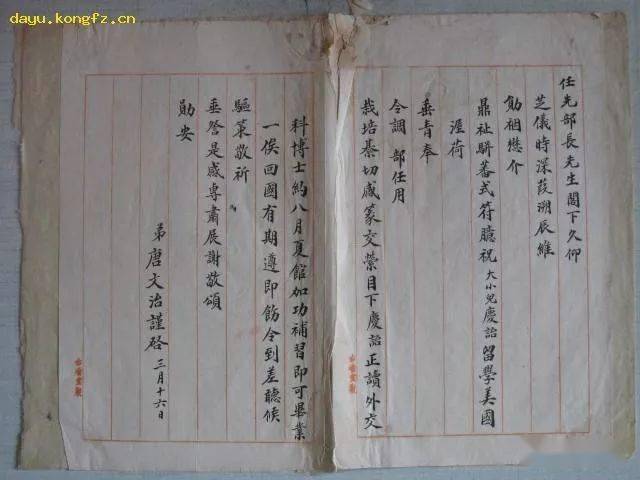 dayu.kongfz.cn
任先部長先生閣下久仰
芝儀時深葭溯辰維
勛祺懋介
鼎祉駢蕃式符臆祝大小兒慶詒留學美國
渥荷
垂青奉
令調 部任用
栽培綦切感篆交縈目下慶詒正讀外交
科博士約八月夏館加功補習即可畢業
一俟回國有期遵即飭令到差聽候
驅策敬祈
垂詧是感專肅展謝敬頌
勛安
弟唐文治謹啓 三月十六日